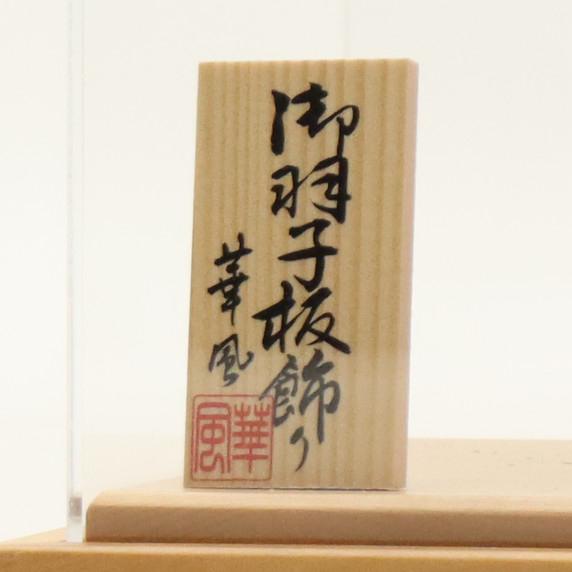 御羽子板飾り
華風
華風